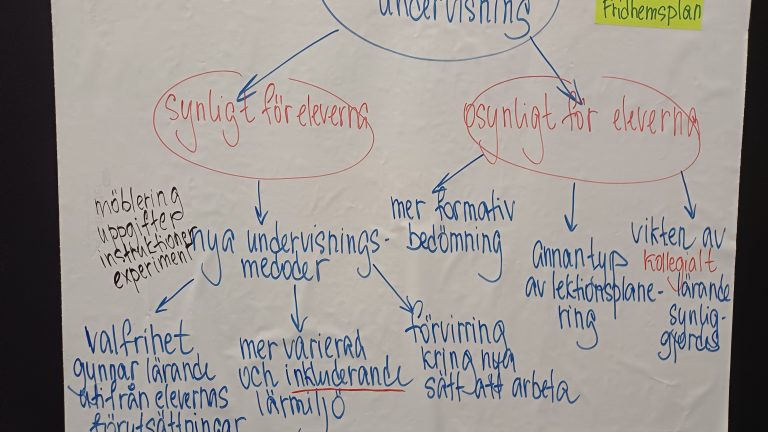 undervisning
Fridhemsplan
synligt för eleverna
osynligt för eleverna
möblering
uppgifter
instruktioner
experiment
nya undervisnings-
medoder
mer formativ
bedömning
annan typ
av lektionsplane-
ring
vikten av
kollegialt
lärande
synlig-
gjordes
valfrihet
gynnar lärande
utifrån elevernas
förutsättningar
mer varierad
och inkluderande
lärmiljö
förvirring
kring nya
sätt att arbeta